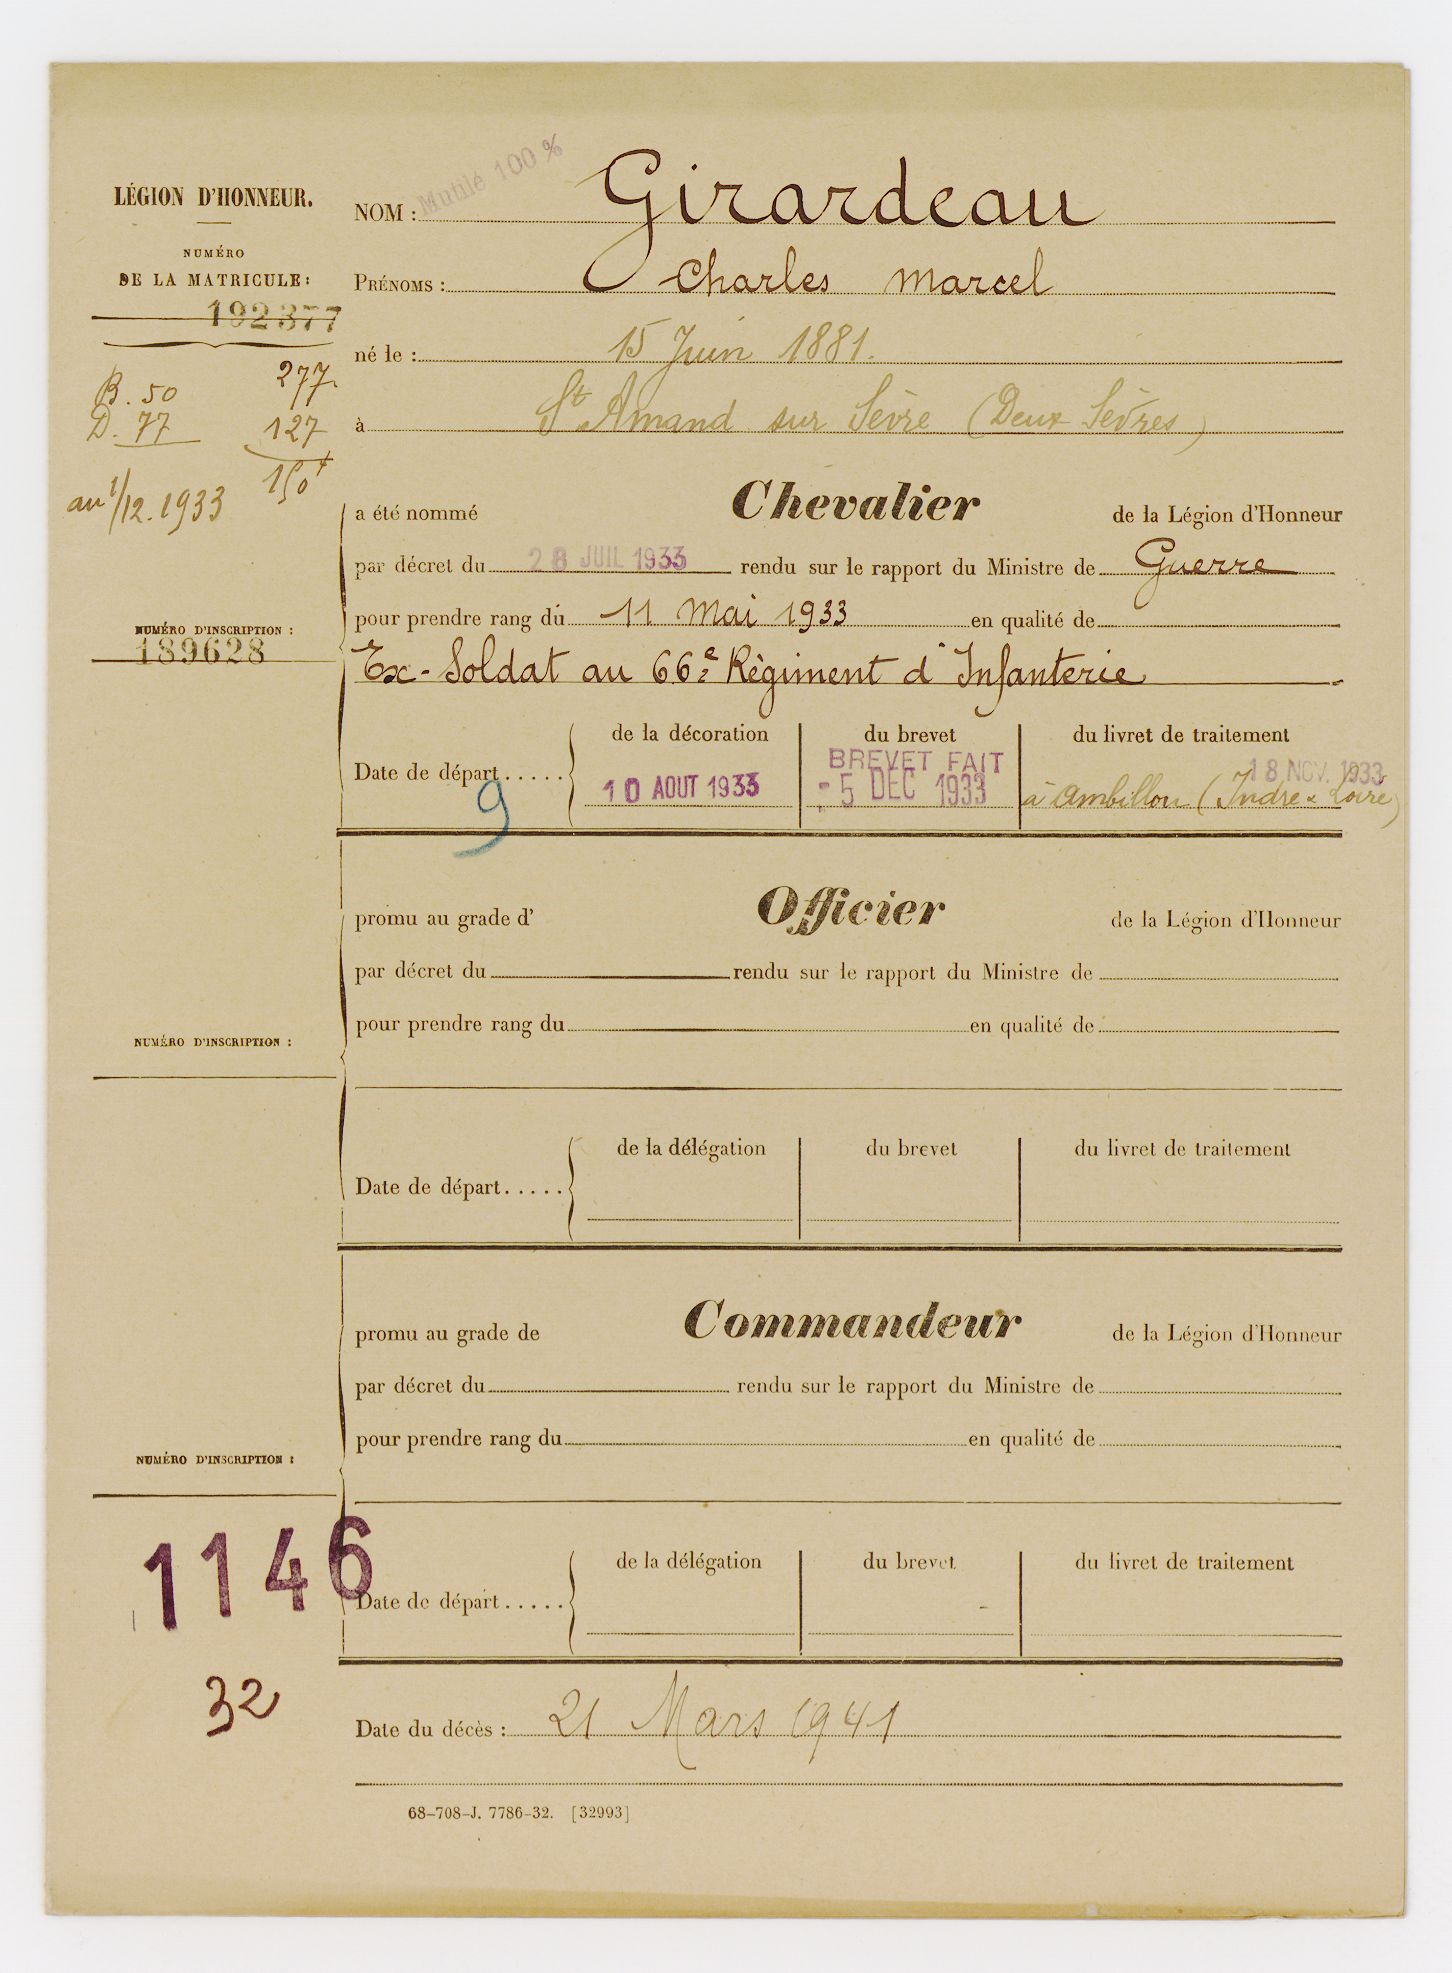 Mutilé 100 %
LÉGION D'HONNEUR.
NUMÉRO
DE LA MATRICULE:
192377
B. 50 277.
D. 77 127
150f
au 1/12.1933
NOM : Girardeau
PRÉNOMS : Charles Marcel
né le : 15 Juin 1881.
à St Amand sur Sèvre (Deux Sèvres)
a été nommé Chevalier de la Légion d'Honneur
par décret du 28 JUIL 1933 rendu sur le rapport du Ministre de Guerre
pour prendre rang du 11 Mai 1933 en qualité de
NUMÉRO D'INSCRIPTION :
189628
Ex-Soldat au 66e Régiment d'Infanterie
de la décoration du brevet du livret de traitement
BREVET FAIT
Date de départ..... 10 AOUT 1933 -5 DEC 1933 18 NOV. 1933
à Ambillou (Indre & Loire)
9
promu au grade d' Officier de la Légion d'Honneur
par décret du rendu sur le rapport du Ministre de
pour prendre rang du en qualité de
NUMÉRO D'INSCRIPTION :
de la délégation du brevet du livret de traitement
Date de départ.....
promu au grade de Commandeur de la Légion d'Honneur
par décret du rendu sur le rapport du Ministre de
pour prendre rang du en qualité de
NUMÉRO D'INSCRIPTION :
1146
de la délégation du brevet du livret de traitement
Date de départ.....
32
Date du décès : 21 Mars 1941
68-708-J. 7786-32. [32993]